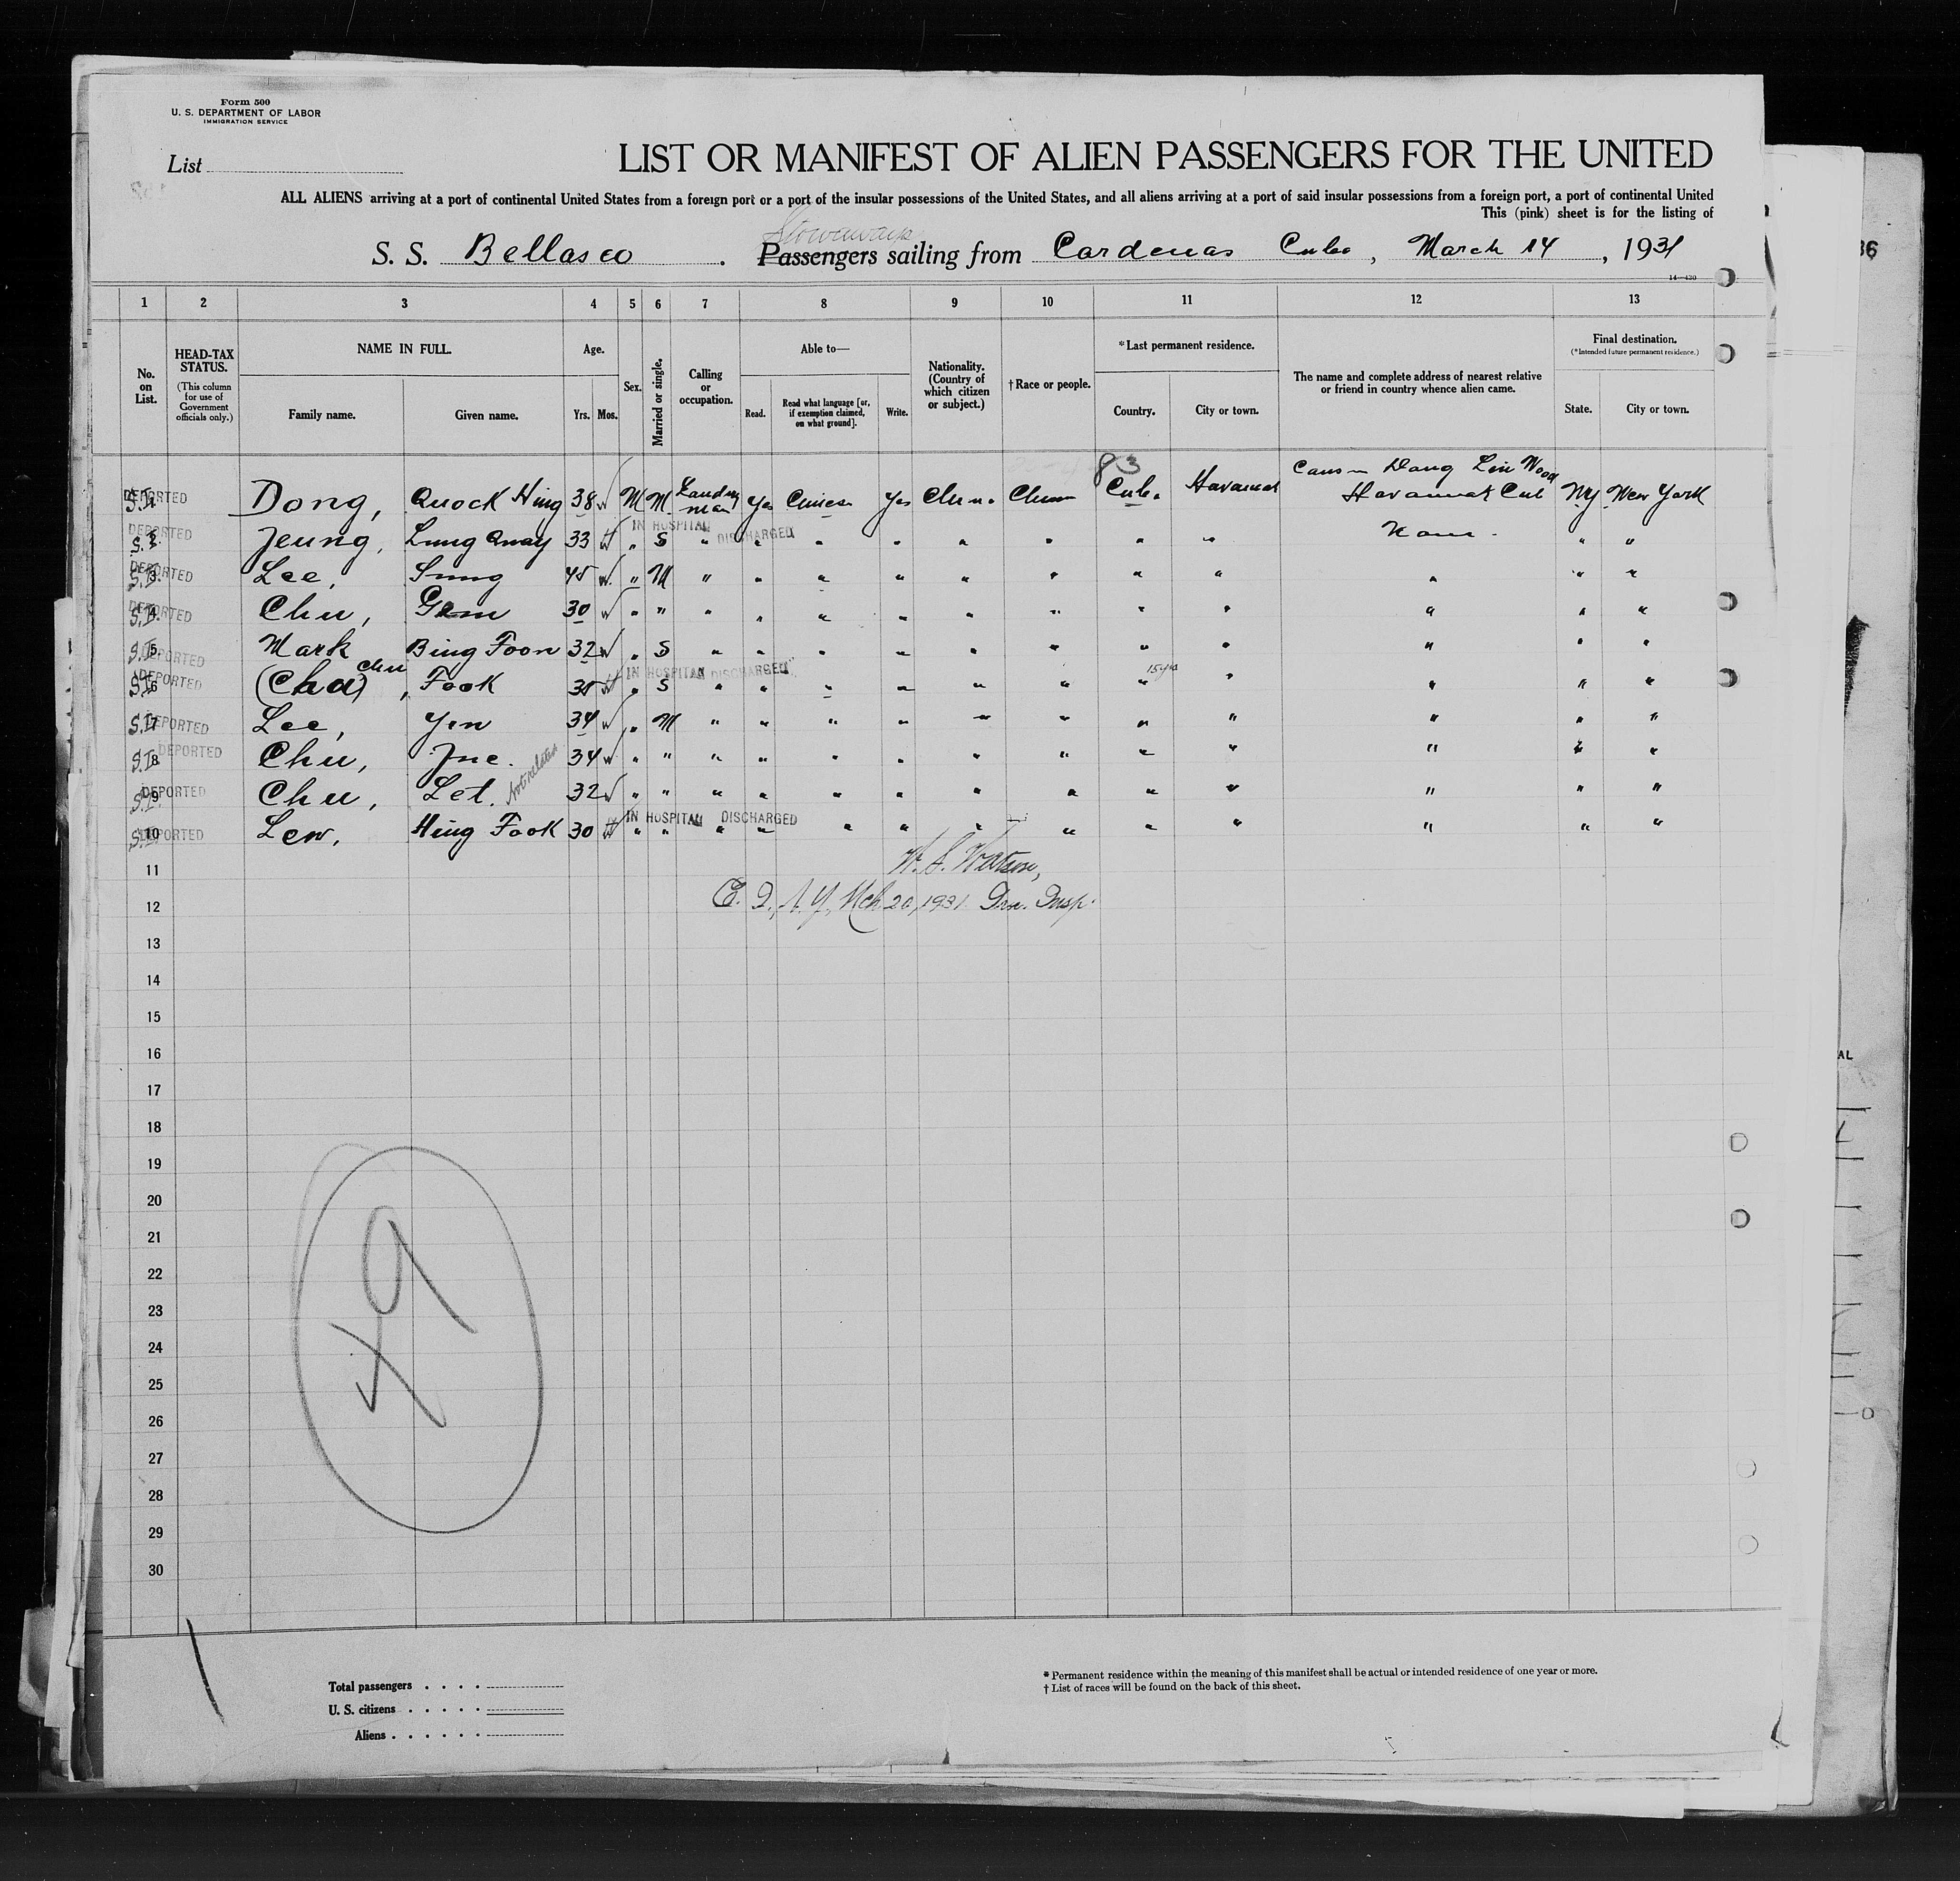 Form 500
U. S. DEPARTMENT OF LABOR
IMMIGRATION SERVICE
List
LIST OR MANIFEST OF ALIEN PASSENGERS FOR THE UNITED
ALL ALIENS arriving at a port of continental United States from a foreign port or a port of the insular possessions of the United States, and all aliens arriving at a port of said insular possessions from a foreign port, a port of continental United
This (pink) sheet is for the listing of
Stowaways
S. S. Bellasco . Passengers sailing from Cardenas Cuba , March 14 , 1931
14—430
1 2 3 4 5 6 7 8 9 10 11 12 13
No. on List.
HEAD-TAX STATUS.
(This column for use of Government officials only.)
NAME IN FULL.
Family name. Given name.
Age.
Yrs. Mos.
Sex.
Married or single.
Calling or occupation.
Able to—
Read. Read what language [or, if exemption claimed, on what ground]. Write.
Nationality. (Country of which citizen or subject.)
† Race or people.
* Last permanent residence.
Country. City or town.
The name and complete address of nearest relative or friend in country whence alien came.
Final destination.
(*Intended future permanent residence.)
State. City or town.
83
DEPORTED Dong, Quock Hing 38 M M Laundry man Yes Chinese Yes China Cuba Havannah Dong Lin Wood Havannah Cub NY New York
IN HOSPITAL DISCHARGED
DEPORTED Jeung, Lung Quay 33 " S " " " " " " " " None " "
DEPORTED 3 Lee, Sung 45 " M " " " " " " " " " " "
DEPORTED 4 Chu, Gem 30 " " " " " " " " " " " " "
DEPORTED 5 Mark Bing Foon 32 " S " " " " " " " " " " "
IN HOSPITAL DISCHARGED
DEPORTED 6 (Cha) Chu, Fook 35 " S " " " " " " " " " " "
DEPORTED 7 Lee, Yin 34 " M " " " " " " " " " " "
DEPORTED 8 Chu, 34 " " " " " " " " " " " " "
Not related
DEPORTED 9 Chu, Let. 32 " " " " " " " " " " " " "
IN HOSPITAL DISCHARGED
DEPORTED 10 Lew, Hing Fook 30 " " " " " " " " " " " " "
11 W. S. Watson,
12 E. I., N.Y, Mch 20, 1931 Insp.
13
14
15
16
17
18
19
20
21
22
23
24
25
26
27
28
29
30
Total passengers
U. S. citizens
Aliens
* Permanent residence within the meaning of this manifest shall be actual or intended residence of one year or more.
† List of races will be found on the back of this sheet.